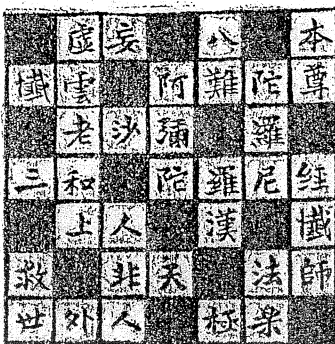 虚妄 八 本
懺雲 阿難陀尊
老沙彌 羅
三和 陀羅尼经
上人 漢 懺
救 非天 法師
世外人 极楽